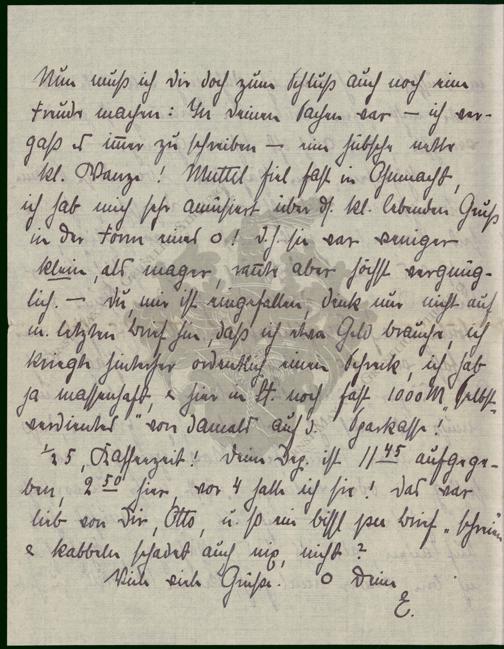 Nun muß ich dir doch zum Schluß auch noch eine
Freude machen: In deinen Sachen war – ich ver-
gaß es immer zu schreiben – eine hübsche nette
kl. Wanze! Muttel fiel fast in Ohnmacht,
ich hab mich sehr amüsiert über ds. kl. lebenden Gruß
in der Form eines o! D.h. sie war weniger
klein, als mager, aber höchst vergnüg-
lich. – Du, mir ist eingefallen, denk nur nicht auf
m. letzten Brief hin, daß ich etwa Geld brauche, ich
kriegte hinterher ordentlich einen Schreck, ich hab
ja massenhaft, & hier in H. noch fast 1000 M „selbst-
verdientes" von damals auf d. Sparkasse!
1/2 5, Kaffeezeit! Deine Dep. ist 11 45 aufgege-
ben, 2 50 hier, vor 4 hatte ich sie! Das war
lieb von dir, Otto, u. so ein bißl per Brief „schreien
& kabbeln schadet auch nix, nicht?
Viele viele Grüße. o Deine
E.